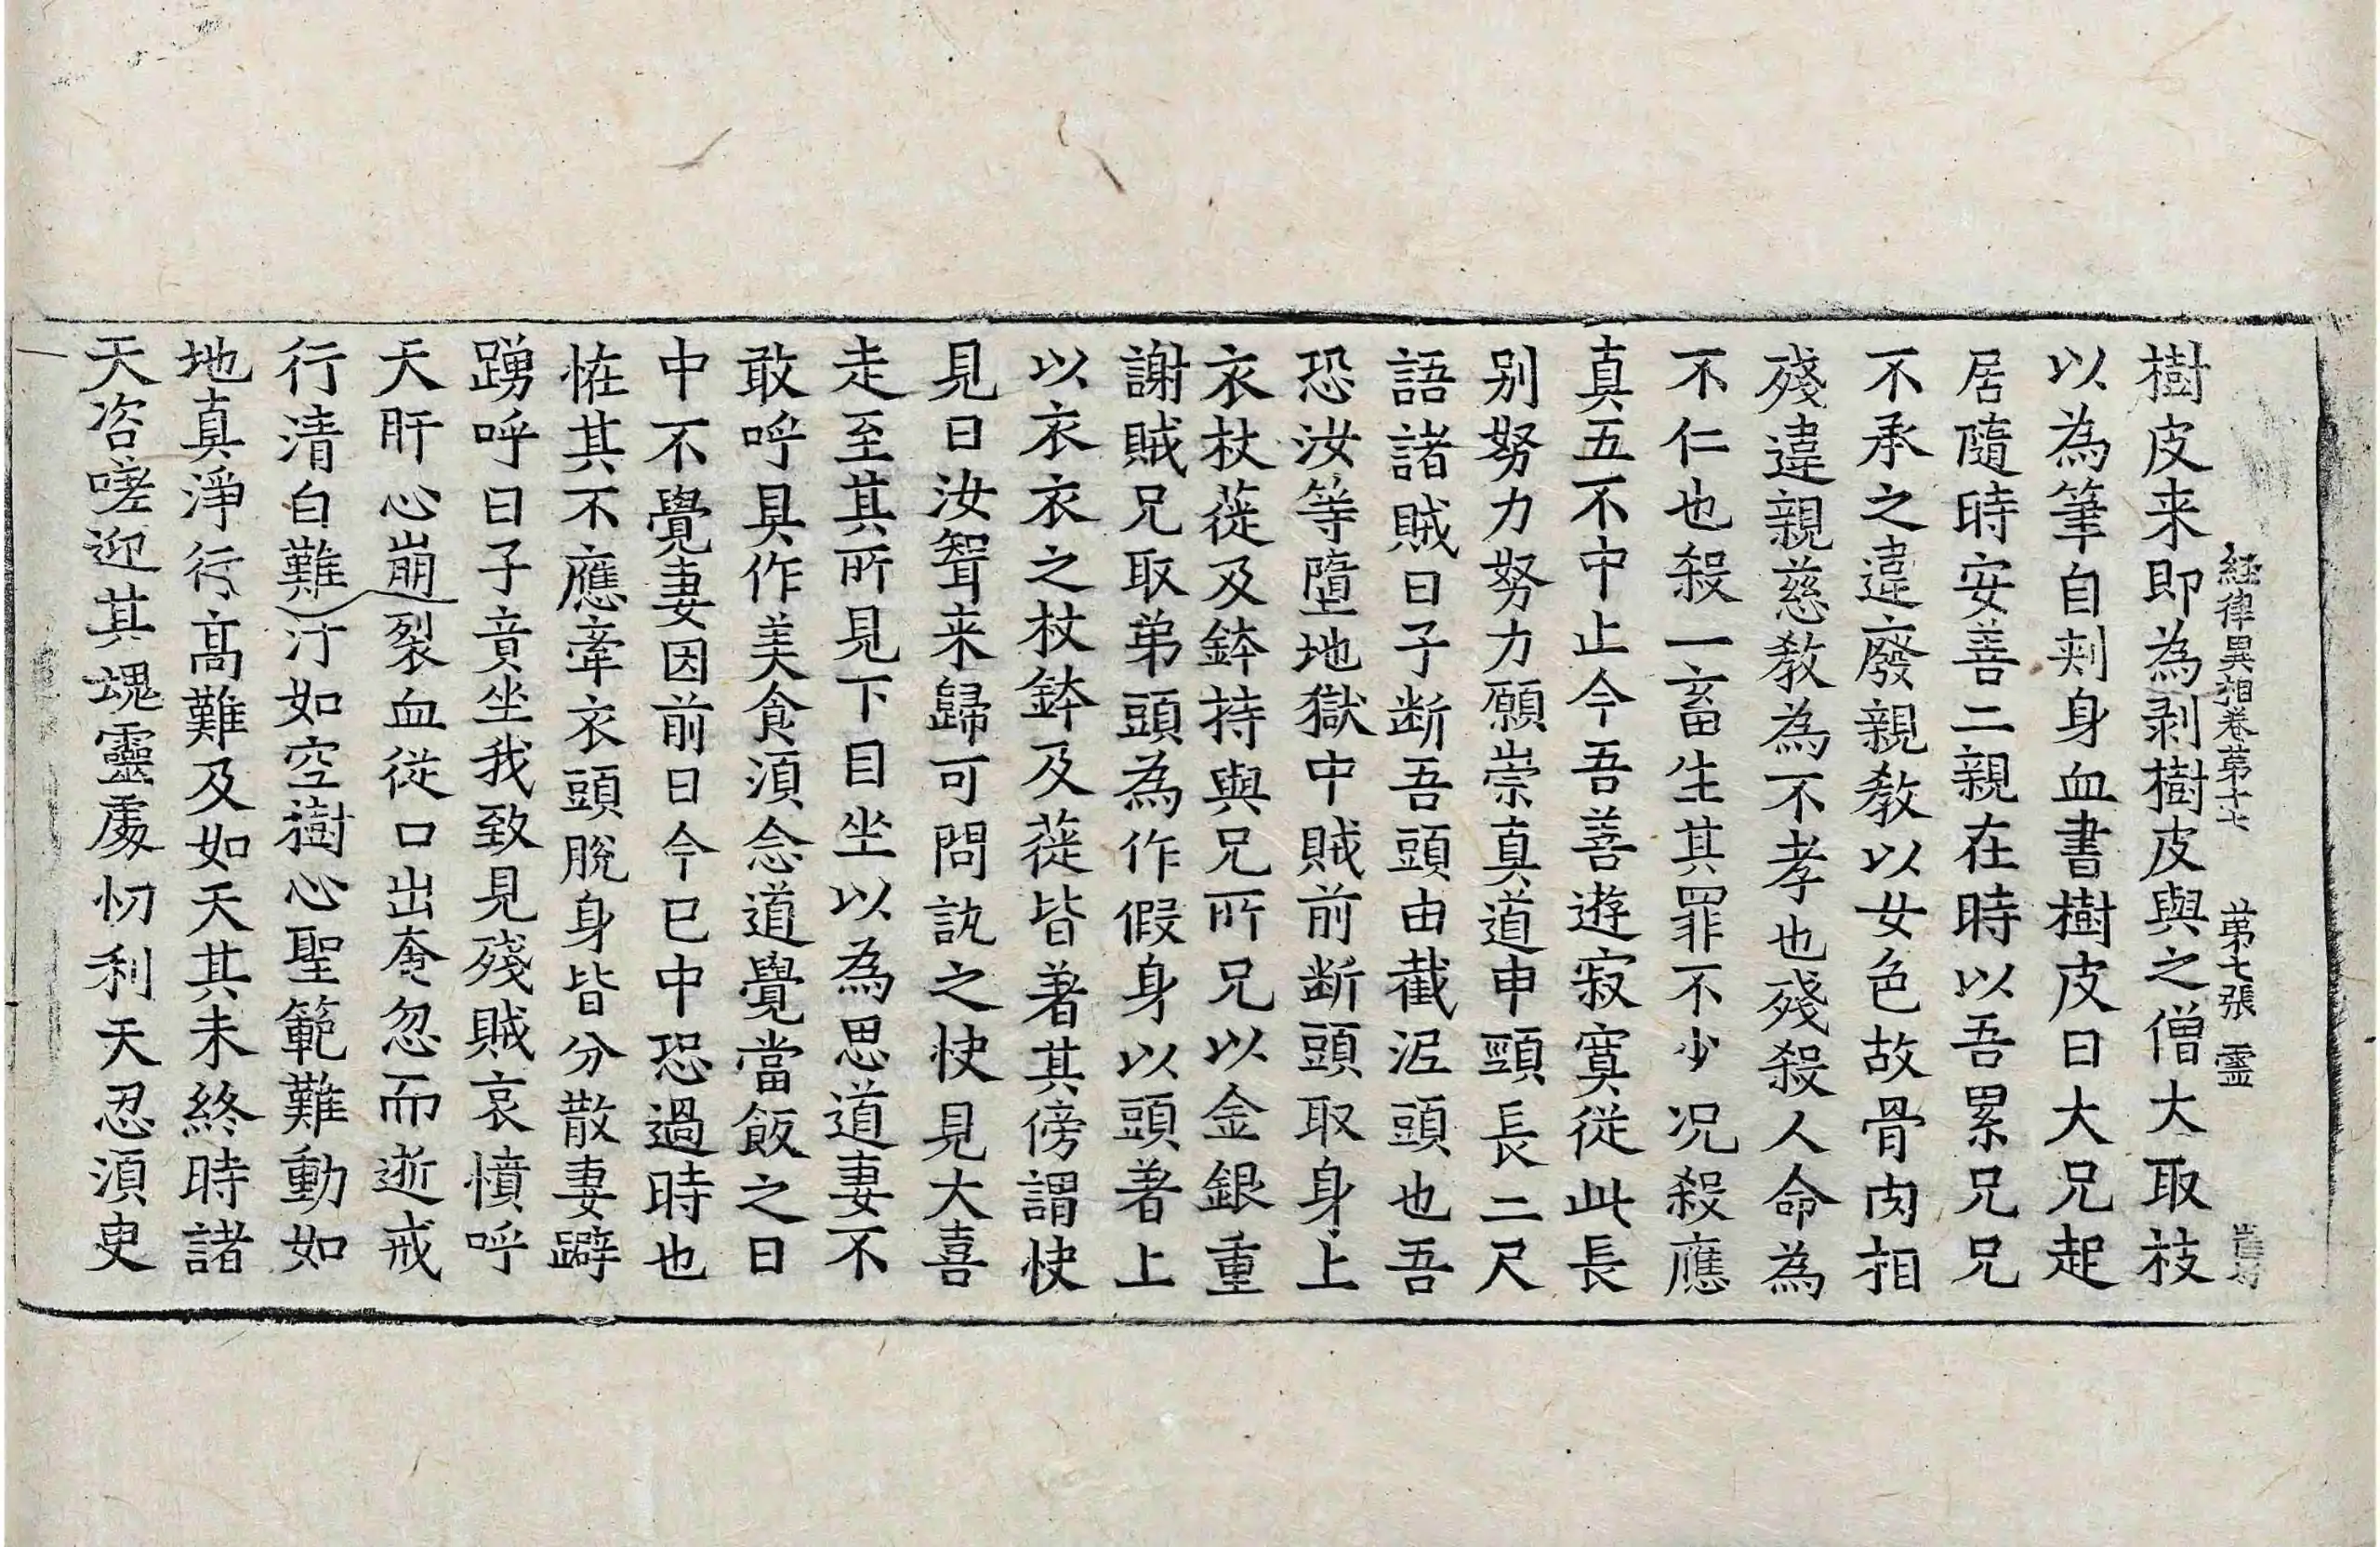 経律異相卷苐十七 苐七張 霊
樹皮来即為剥樹皮與之僧大取枝
以為筆自刾身血書樹皮曰大兄起
居隨時安善二親在時以吾累兄兄
不承之違廢親教以女色故骨肉相
殘違親慈教為不孝也殘殺人命為
不仁也殺一畜生其罪不少况殺應
真五不中止今吾善遊寂寞従此長
别努力努力願崇真道申頸長二尺
語諸賊曰子断吾頭由截泥頭也吾
恐汝等墮地獄中賊前断頭取身上
衣杖蓰及鉢持與兄所兄以金銀重
謝賊兄取弟頭為作假身以頭著上
以衣衣之杖鉢及蓰皆著其傍謂快
見曰汝聟来歸可問訊之快見大喜
走至其所見下目坐以為思道妻不
敢呼具作美食湏念道覺當飯之日
中不覺妻因前曰今已中恐過時也
恠其不應牽衣頭脫身皆分散妻躃
踴呼曰子竟坐我致見殘賊哀憤呼
天肝心崩裂血従口出奄忽而逝戒
行清白難汙如空樹心聖範難動如
地真淨行高難及如天其未終時諸
天咨嗟迎其魂靈處忉利天忍湏臾